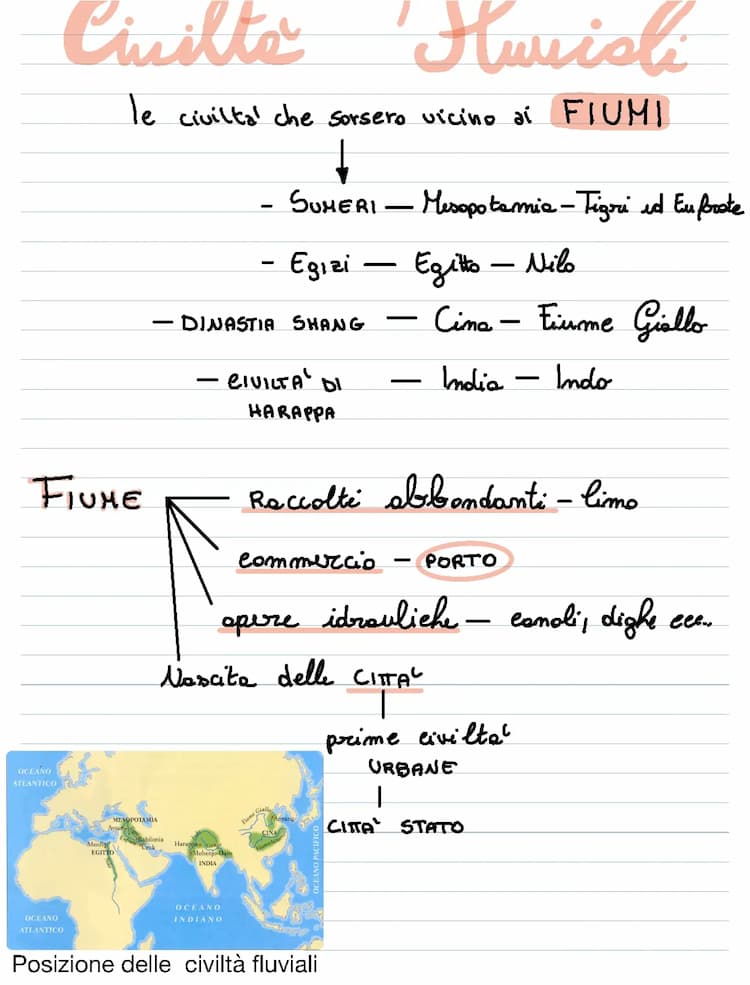 Civiltà Fluviali
le civiltà che sorsero vicino ai FIUMI
- SUMERI — Mesopotamia - Tigri ed Eufrate
- Egizi — Egitto — Nilo
- DINASTIA SHANG — Cina - Fiume Giallo
- CIVILTÀ DI HARAPPA — India - Indo
FIUME
Raccolti abbondanti - limo
commercio - PORTO
opere idrauliche - canali, dighe ecc..
Nascita delle CITTÀ
prime civiltà
URBANE
CITTÀ STATO
OCEANO
ATLANTICO
MESOPOTAMIA
Babilonia
Uruk
EGITTO
Harappa
INDIA
Fiume Giallo
CINA
OCEANO PACIFICO
OCEANO
INDIANO
OCEANO
ATLANTICO
Posizione delle civiltà fluviali